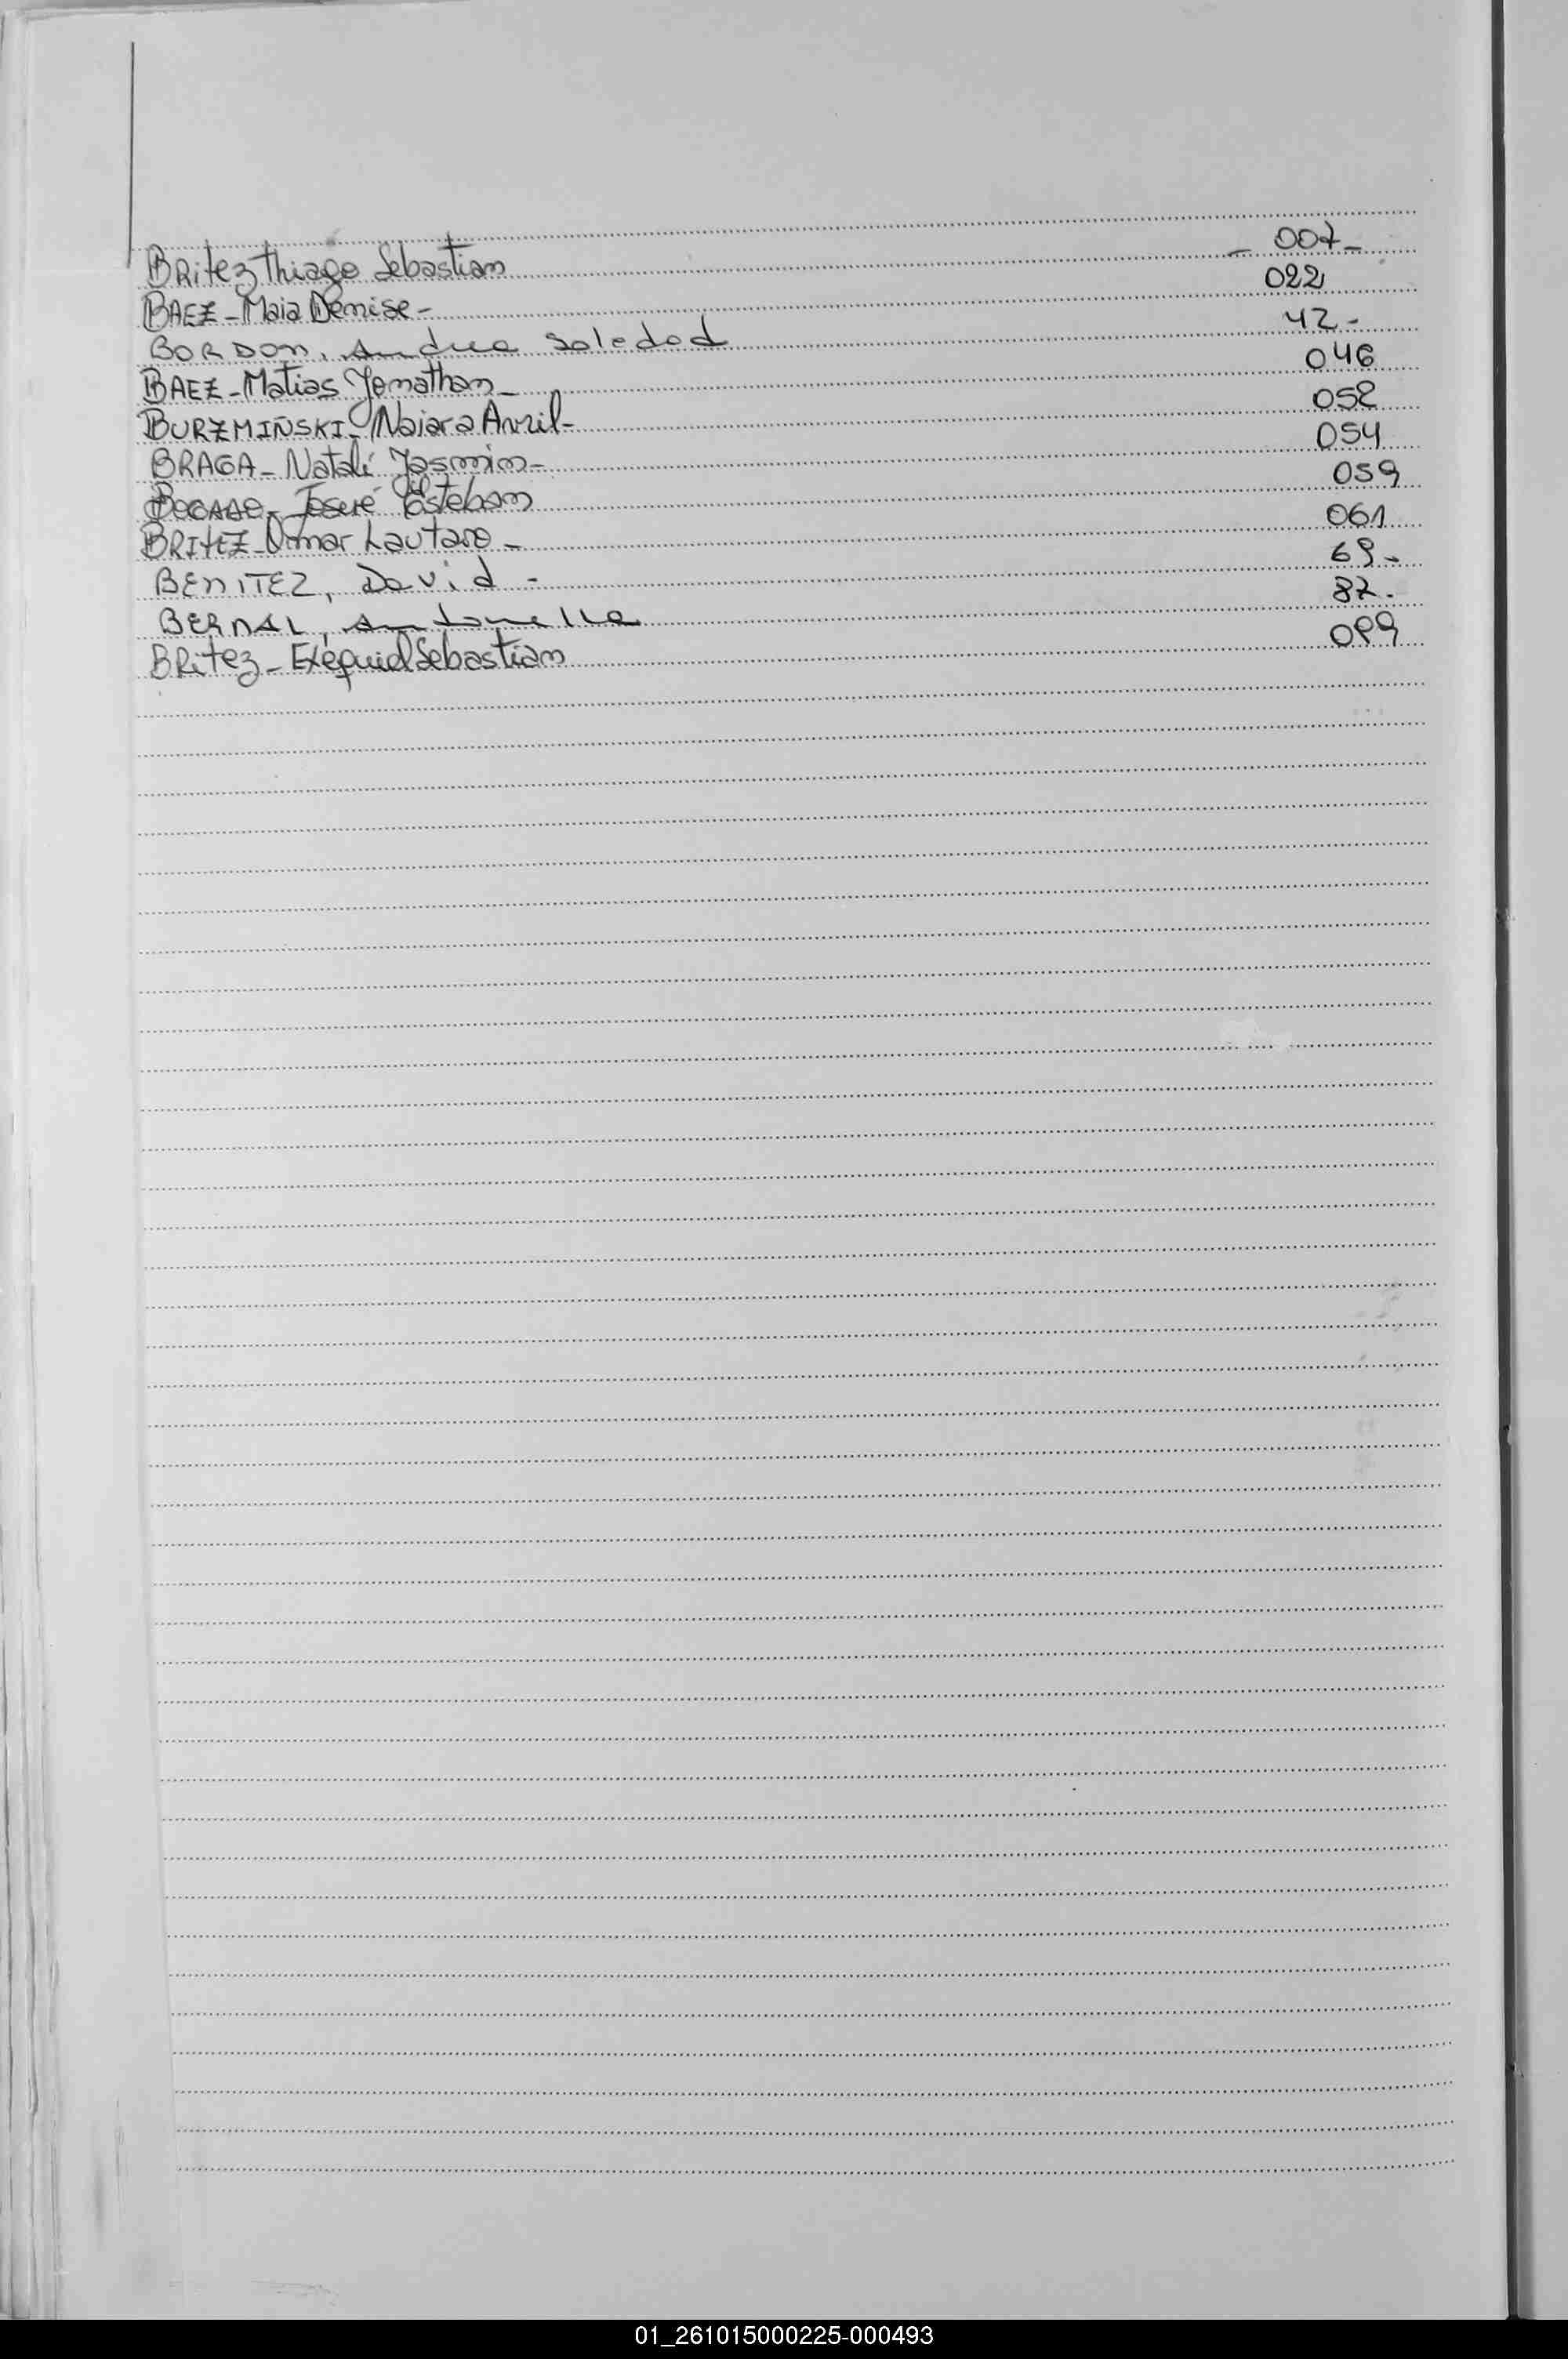 Britez Thiago Sebastian - 007-
BAEZ - Maia Denise - 022
BORDON, Andrea Soledad 42-
BAEZ - Matias Jonathan - 046
BURZMIÑSKI - Naiara Anzil - 052
BRAGA - Natalí Yasmin - 054
BOGADO - Josué Esteban 059
BRITEZ - Omar Lautaro - 061
BENITEZ, David - 69-
BERNAL, Antonella 87-
Britez - Exequiel Sebastian 099
01_261015000225-000493